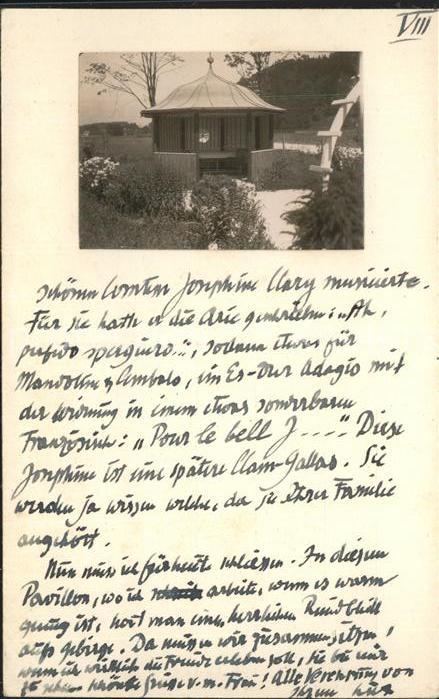 VIII
schönen Comtesse Josephine Clary musicierte.
Für sie hatte er die Arie geschrieben: „Ah,
perfido spergiuro..", sodann etwas für
Mandoline & Cembalo, im Es-Dur Adagio mit
der Widmung in einem etwas sonderbaren
Französisch: „Pour le bell J....." Diese
Josephine ist eine spätere Clam-Gallas. Sie
werden ja wissen welche, da sie Ihrer Familie
angehört.
Nun muss ich für heute schliessen. In diesem
Pavillon, wo ich arbeite, wenn es warm
genug ist, hat man einen herrlichen Rundblick
aufs Gebirge. Da müssen wir zusammensitzen,
wenn ich wirklich die Freude erleben soll, Sie bei mir
zu sehen. Schönste Grüsse v. m. Frau! Alle Verehrung von
Ihrem